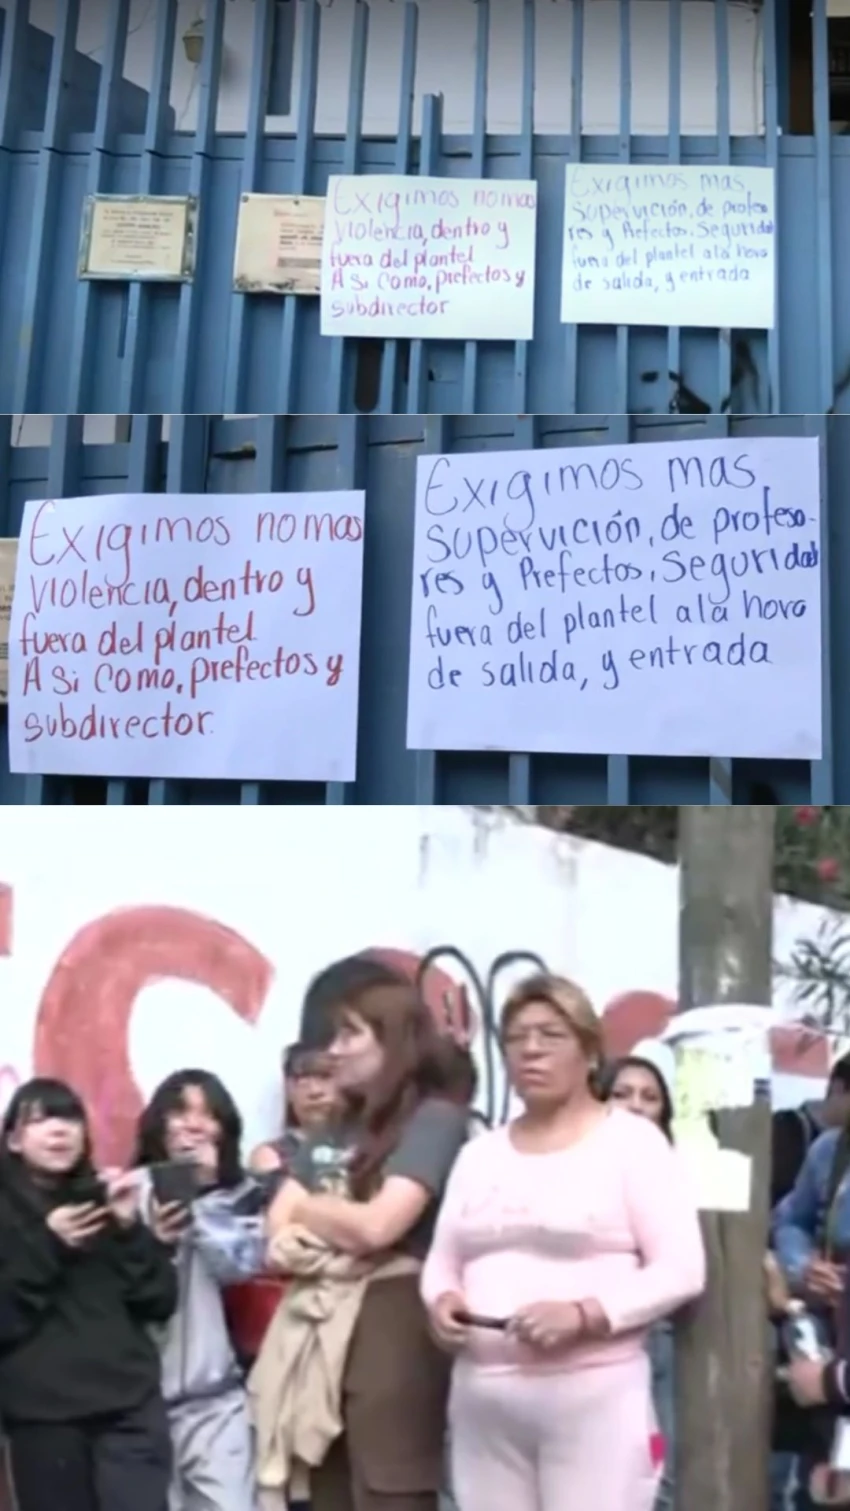 Exigimos no mas
violencia, dentro y
fuera del plantel
A Si Como, prefectos y
subdirector
Exigimos mas
Supervición, de profeso
res y Prefectos, Seguridad
fuera del plantel ala hora
de salida, y entrada
Exigimos no mas
violencia, dentro y
fuera del plantel
A Si Como, prefectos y
subdirector.
Exigimos mas
Supervición, de profeso-
res y Prefectos, Seguridad
fuera del plantel ala hora
de salida, y entrada